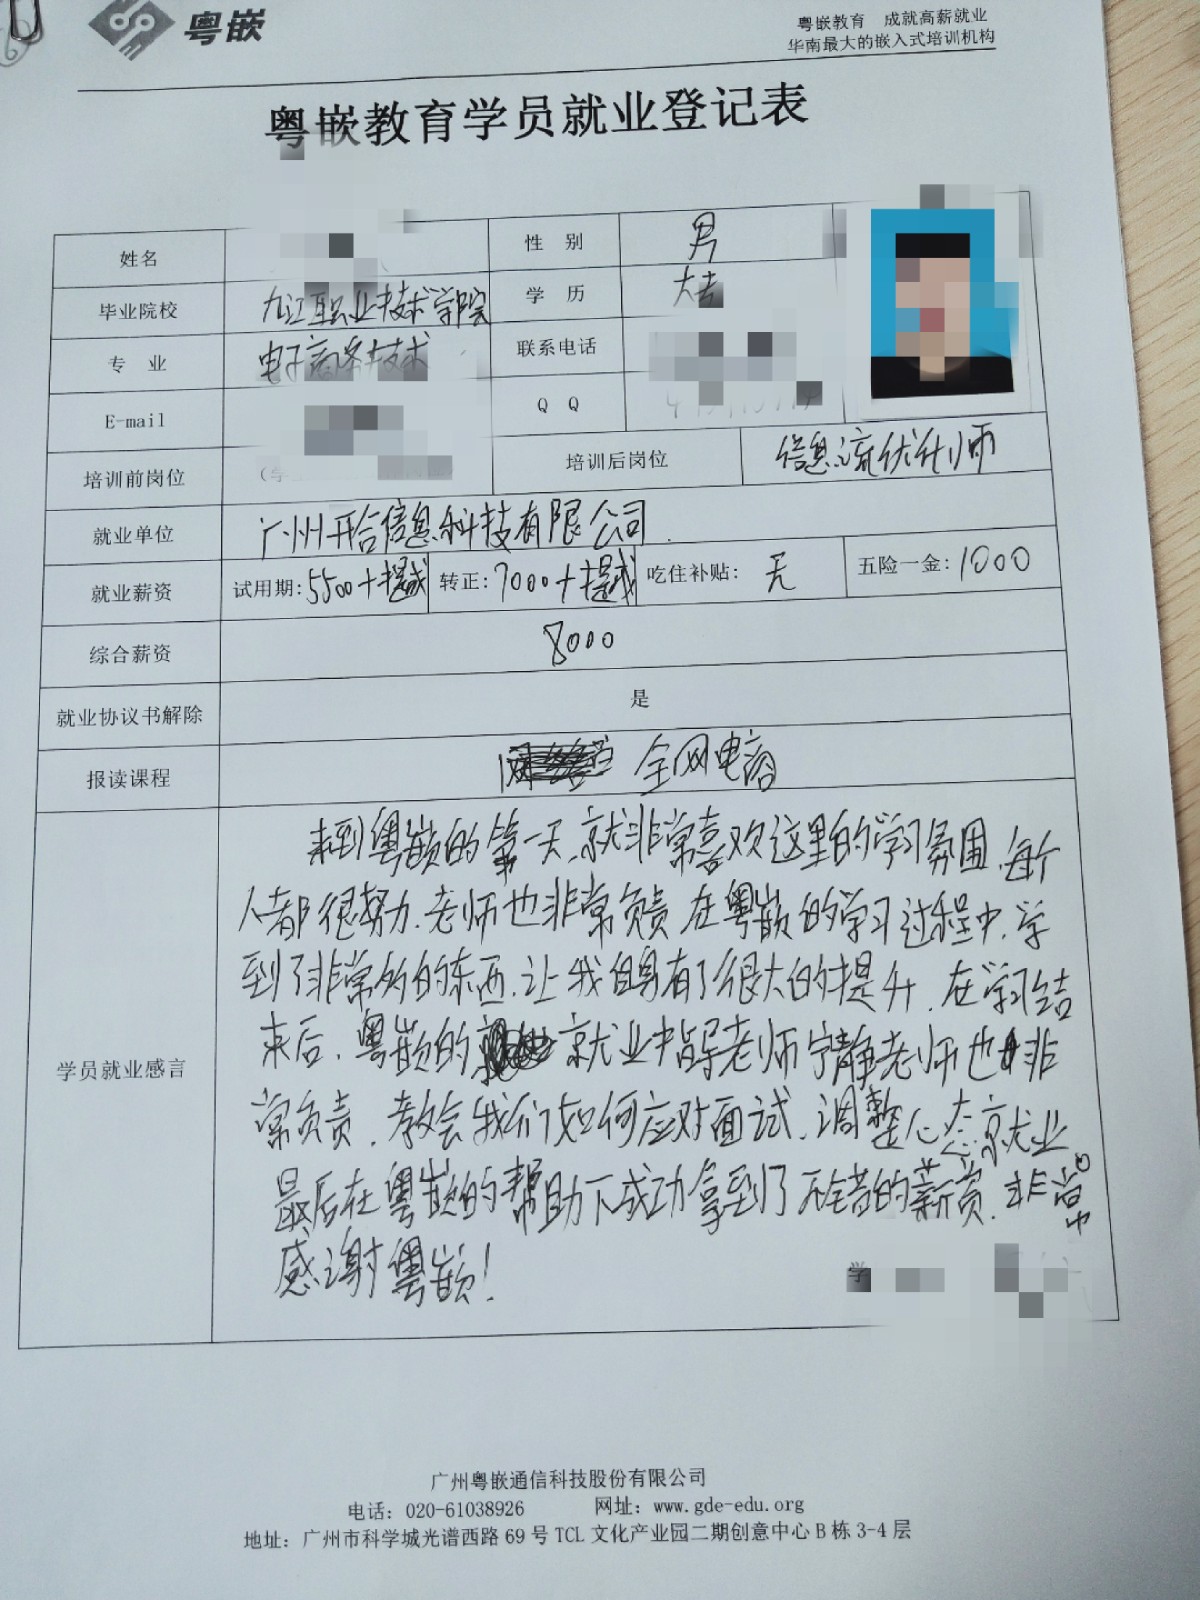 粤嵌
粤嵌教育 成就高薪就业
华南最大的嵌入式培训机构
粤嵌教育学员就业登记表
姓名 性 别 男
毕业院校 九江职业技术学院 学 历 大专
专 业 电子商务技术 联系电话
E-mail Q Q
培训前岗位 (学 培训后岗位 信息流优化师
就业单位 广州开合信息科技有限公司.
就业薪资 试用期: 5500+提成 转正: 7000+提成 吃住补贴: 无 五险一金: 1000
综合薪资 8000
就业协议书解除 是
报读课程 全网电商
学员就业感言
来到粤嵌的第一天,就非常喜欢这里的学习氛围,每个
人都很努力.老师也非常负责在粤嵌的学习过程中,学
到了非常多的东西,让我自身有了很大的提升,在学习结
束后,粤嵌的就业指导老师宁静老师也非
常负责,教会我们如何应对面试,调整心态就业
最后在粤嵌的帮助下成功拿到了不错的薪资,非常
感谢粤嵌!
学
广州粤嵌通信科技股份有限公司
电话: 020-61038926 网址: www.gde-edu.org
地址: 广州市科学城光谱西路 69 号 TCL 文化产业园二期创意中心 B 栋 3-4 层